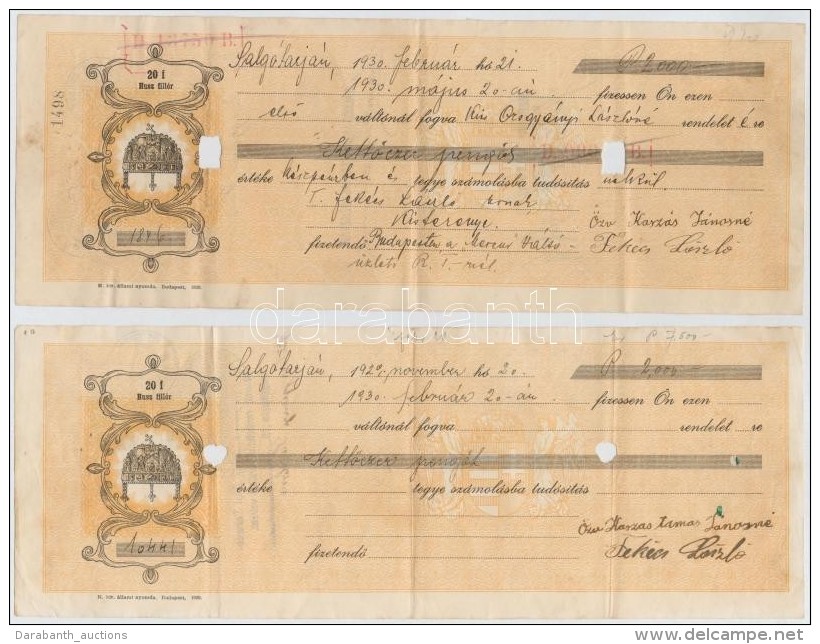 Salgótarján, 1930. február hó 21. P 2,000
20 f
Husz fillér
1930. május 20-án fizessen Ön ezen
1498
első váltónál fogva Kis Orsgyányi Lászlóné rendelet é re
Kettőezer pengőt
értéke készpénzben és tegye számolásba tudósítás nélkül.
T. Fekécs László úrnak
Kisterenye. Özv Kaszás Jánosné
1846
fizetendő Budapesten a Mercur Váltó-
Fekécs László
üzleti R. T.-nál.
M. kir. állami nyomda. Budapest, 1929.
darabanth
P 7,500-
Salgótarján, 1929. november hó 20. P. 2,000-
20 f
Husz fillér
1930. február 20-án fizessen Ön ezen
váltónál fogva rendelet re
Kettőezer pengőt
értéke tegye számolásba tudósítás
Özv Kaszás Jánosné
10441
fizetendő
Fekécs László
M. kir. állami nyomda. Budapest, 1929.
Darabanth_auctions
delcampe.net